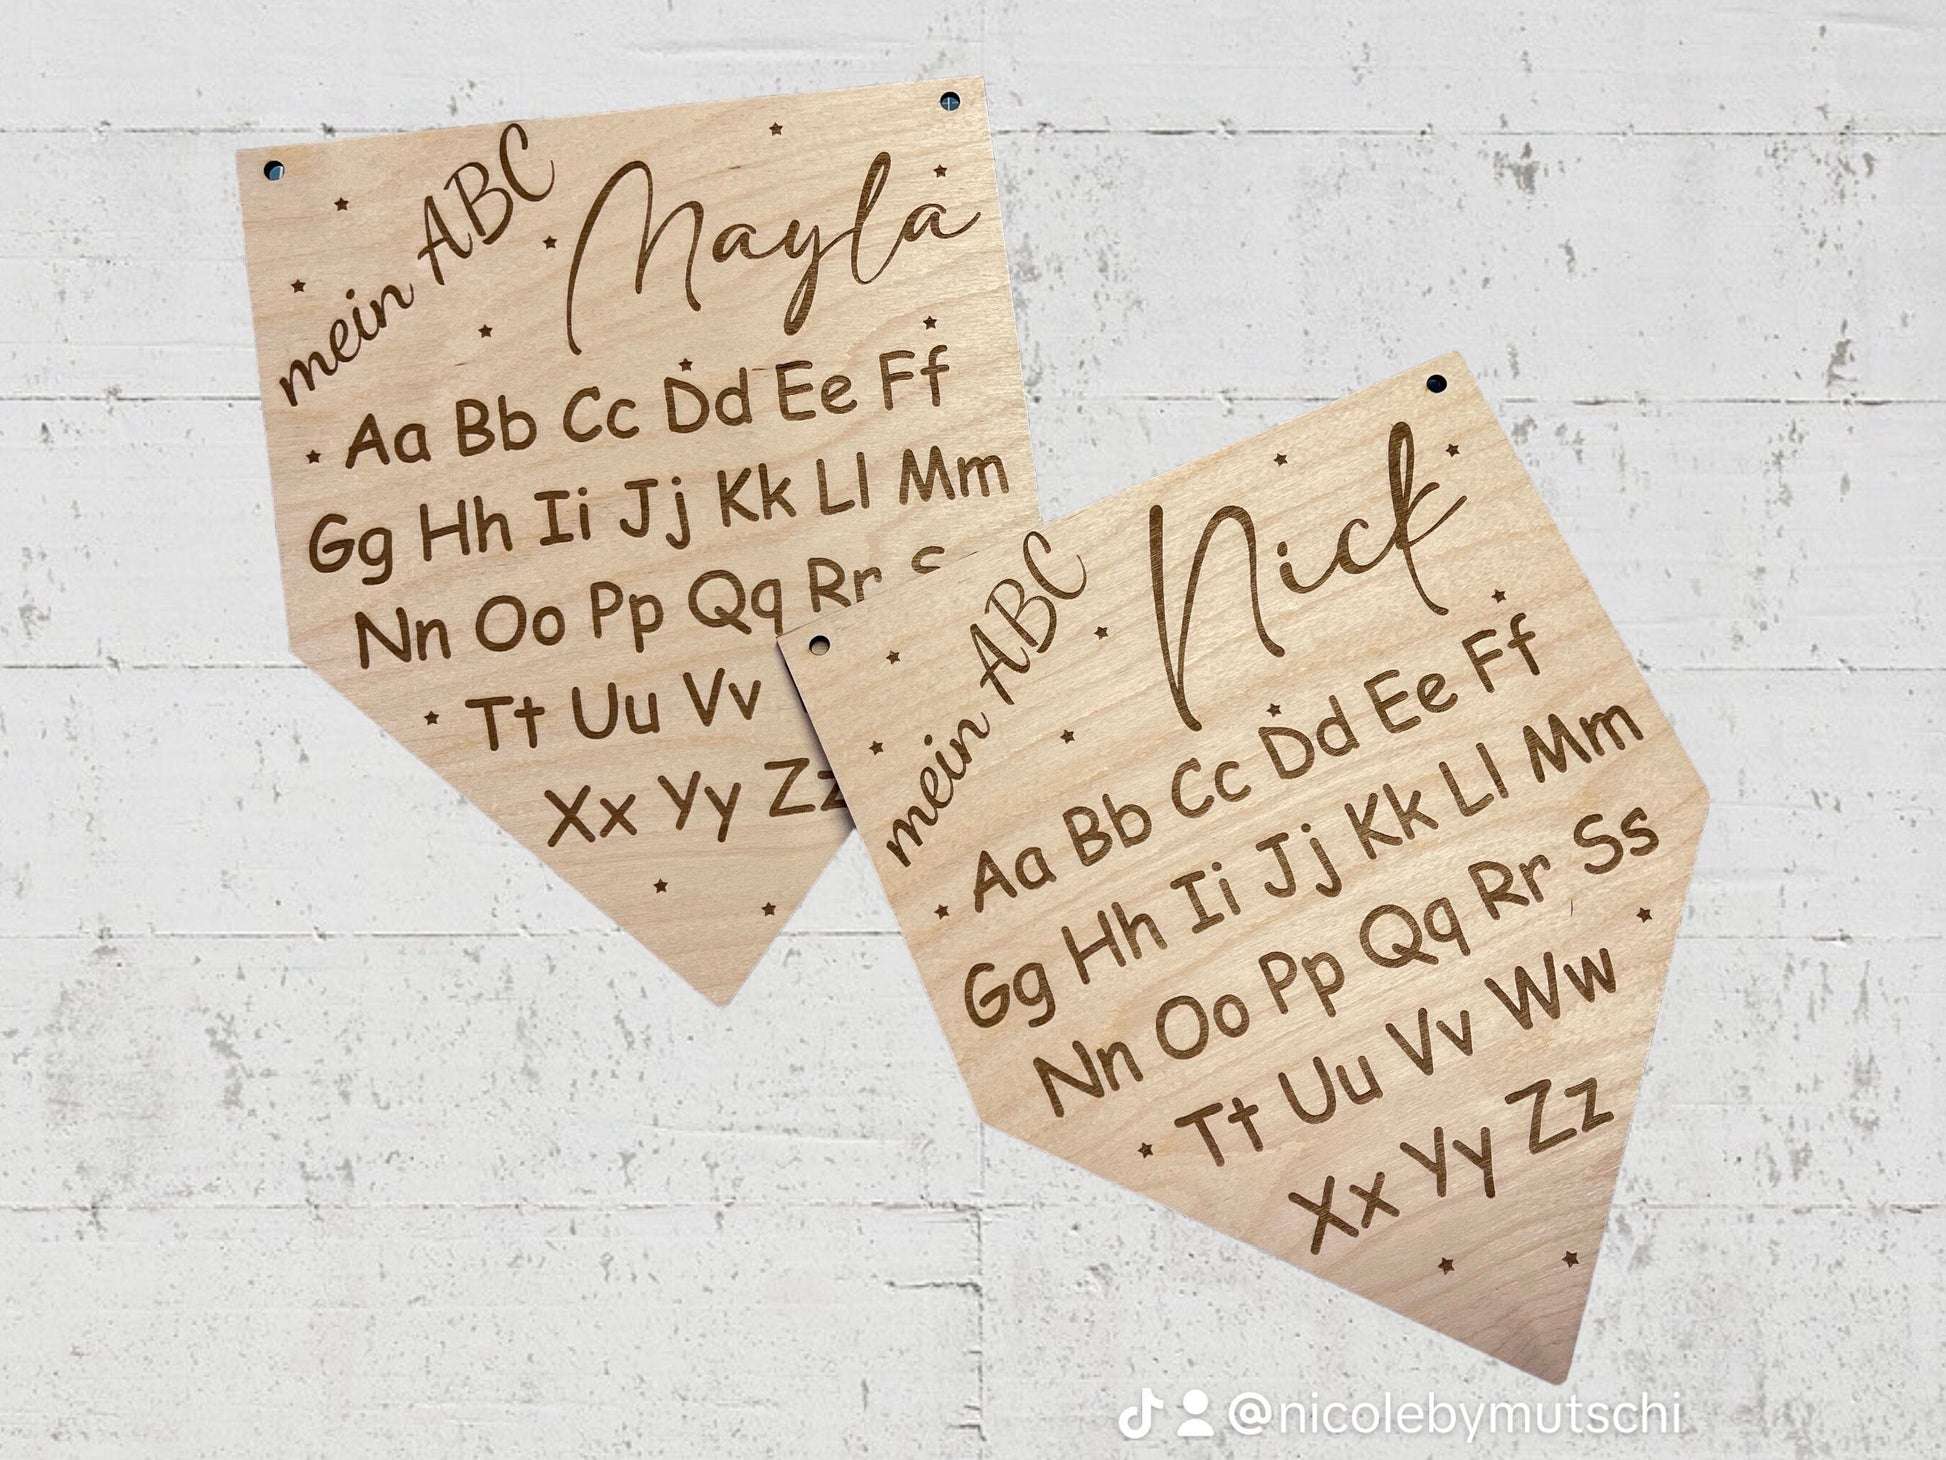 mein ABC
Mayla
Aa Bb Cc Dd Ee Ff
Gg Hh Ii Jj Kk Ll Mm
Nn Oo Pp Qq Rr S
Tt Uu Vv
Xx Yy Zz
mein ABC
Nick
Aa Bb Cc Dd Ee Ff
Gg Hh Ii Jj Kk Ll Mm
Nn Oo Pp Qq Rr Ss
Tt Uu Vv Ww
Xx Yy Zz
@nicolebymutschi